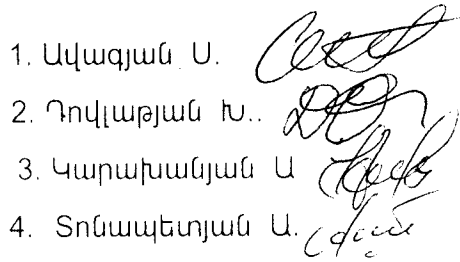 1. Ավագյան Ս.
2. Դովլաթյան Խ..
3. Կարախանյան Ա
4. Տոնապետյան Ա.